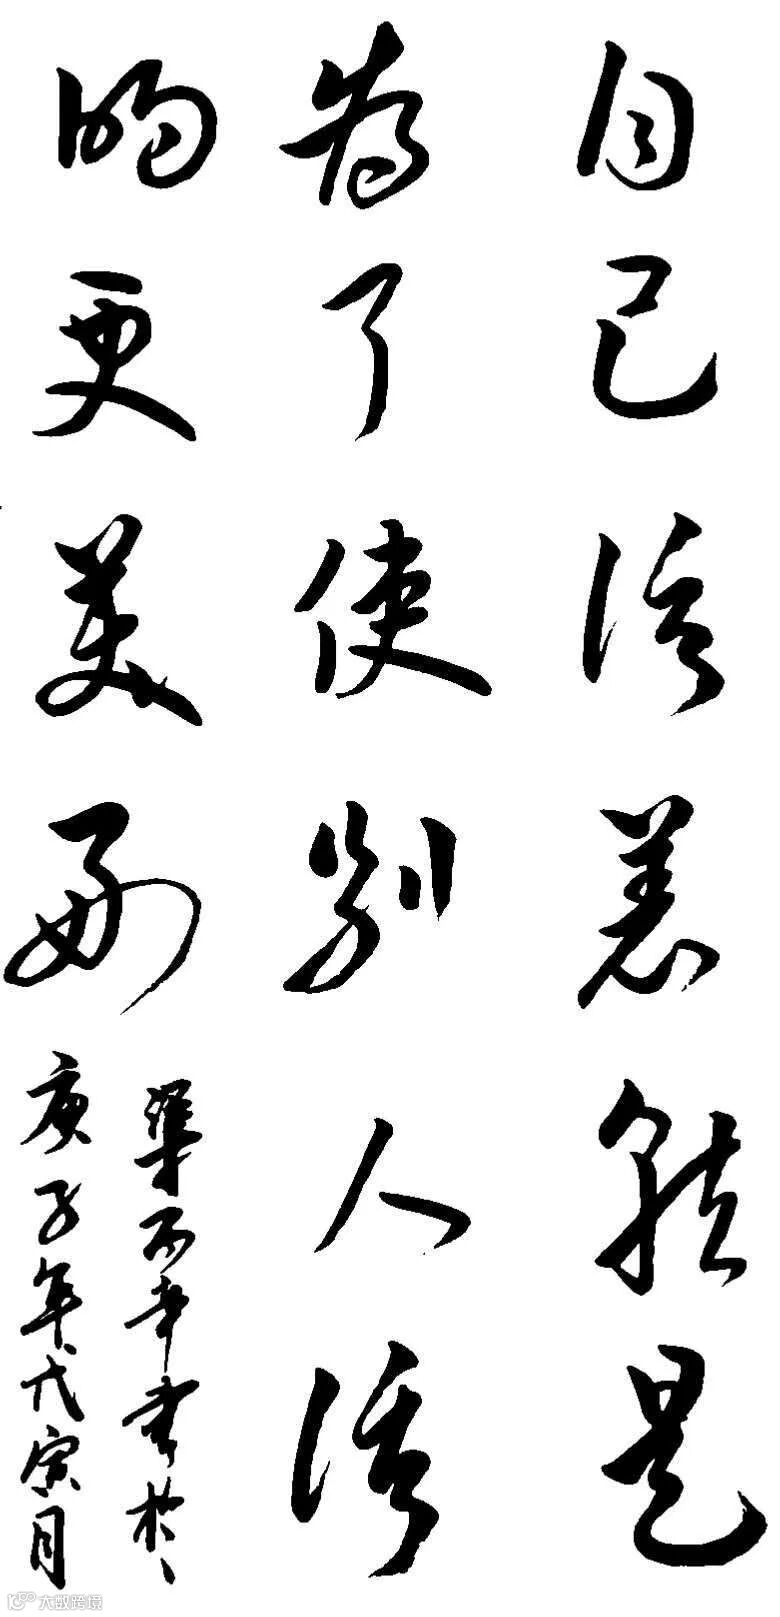 自己活着就是
为了使别人活
的更美好
书於
庚子年戊寅月
大数跨境